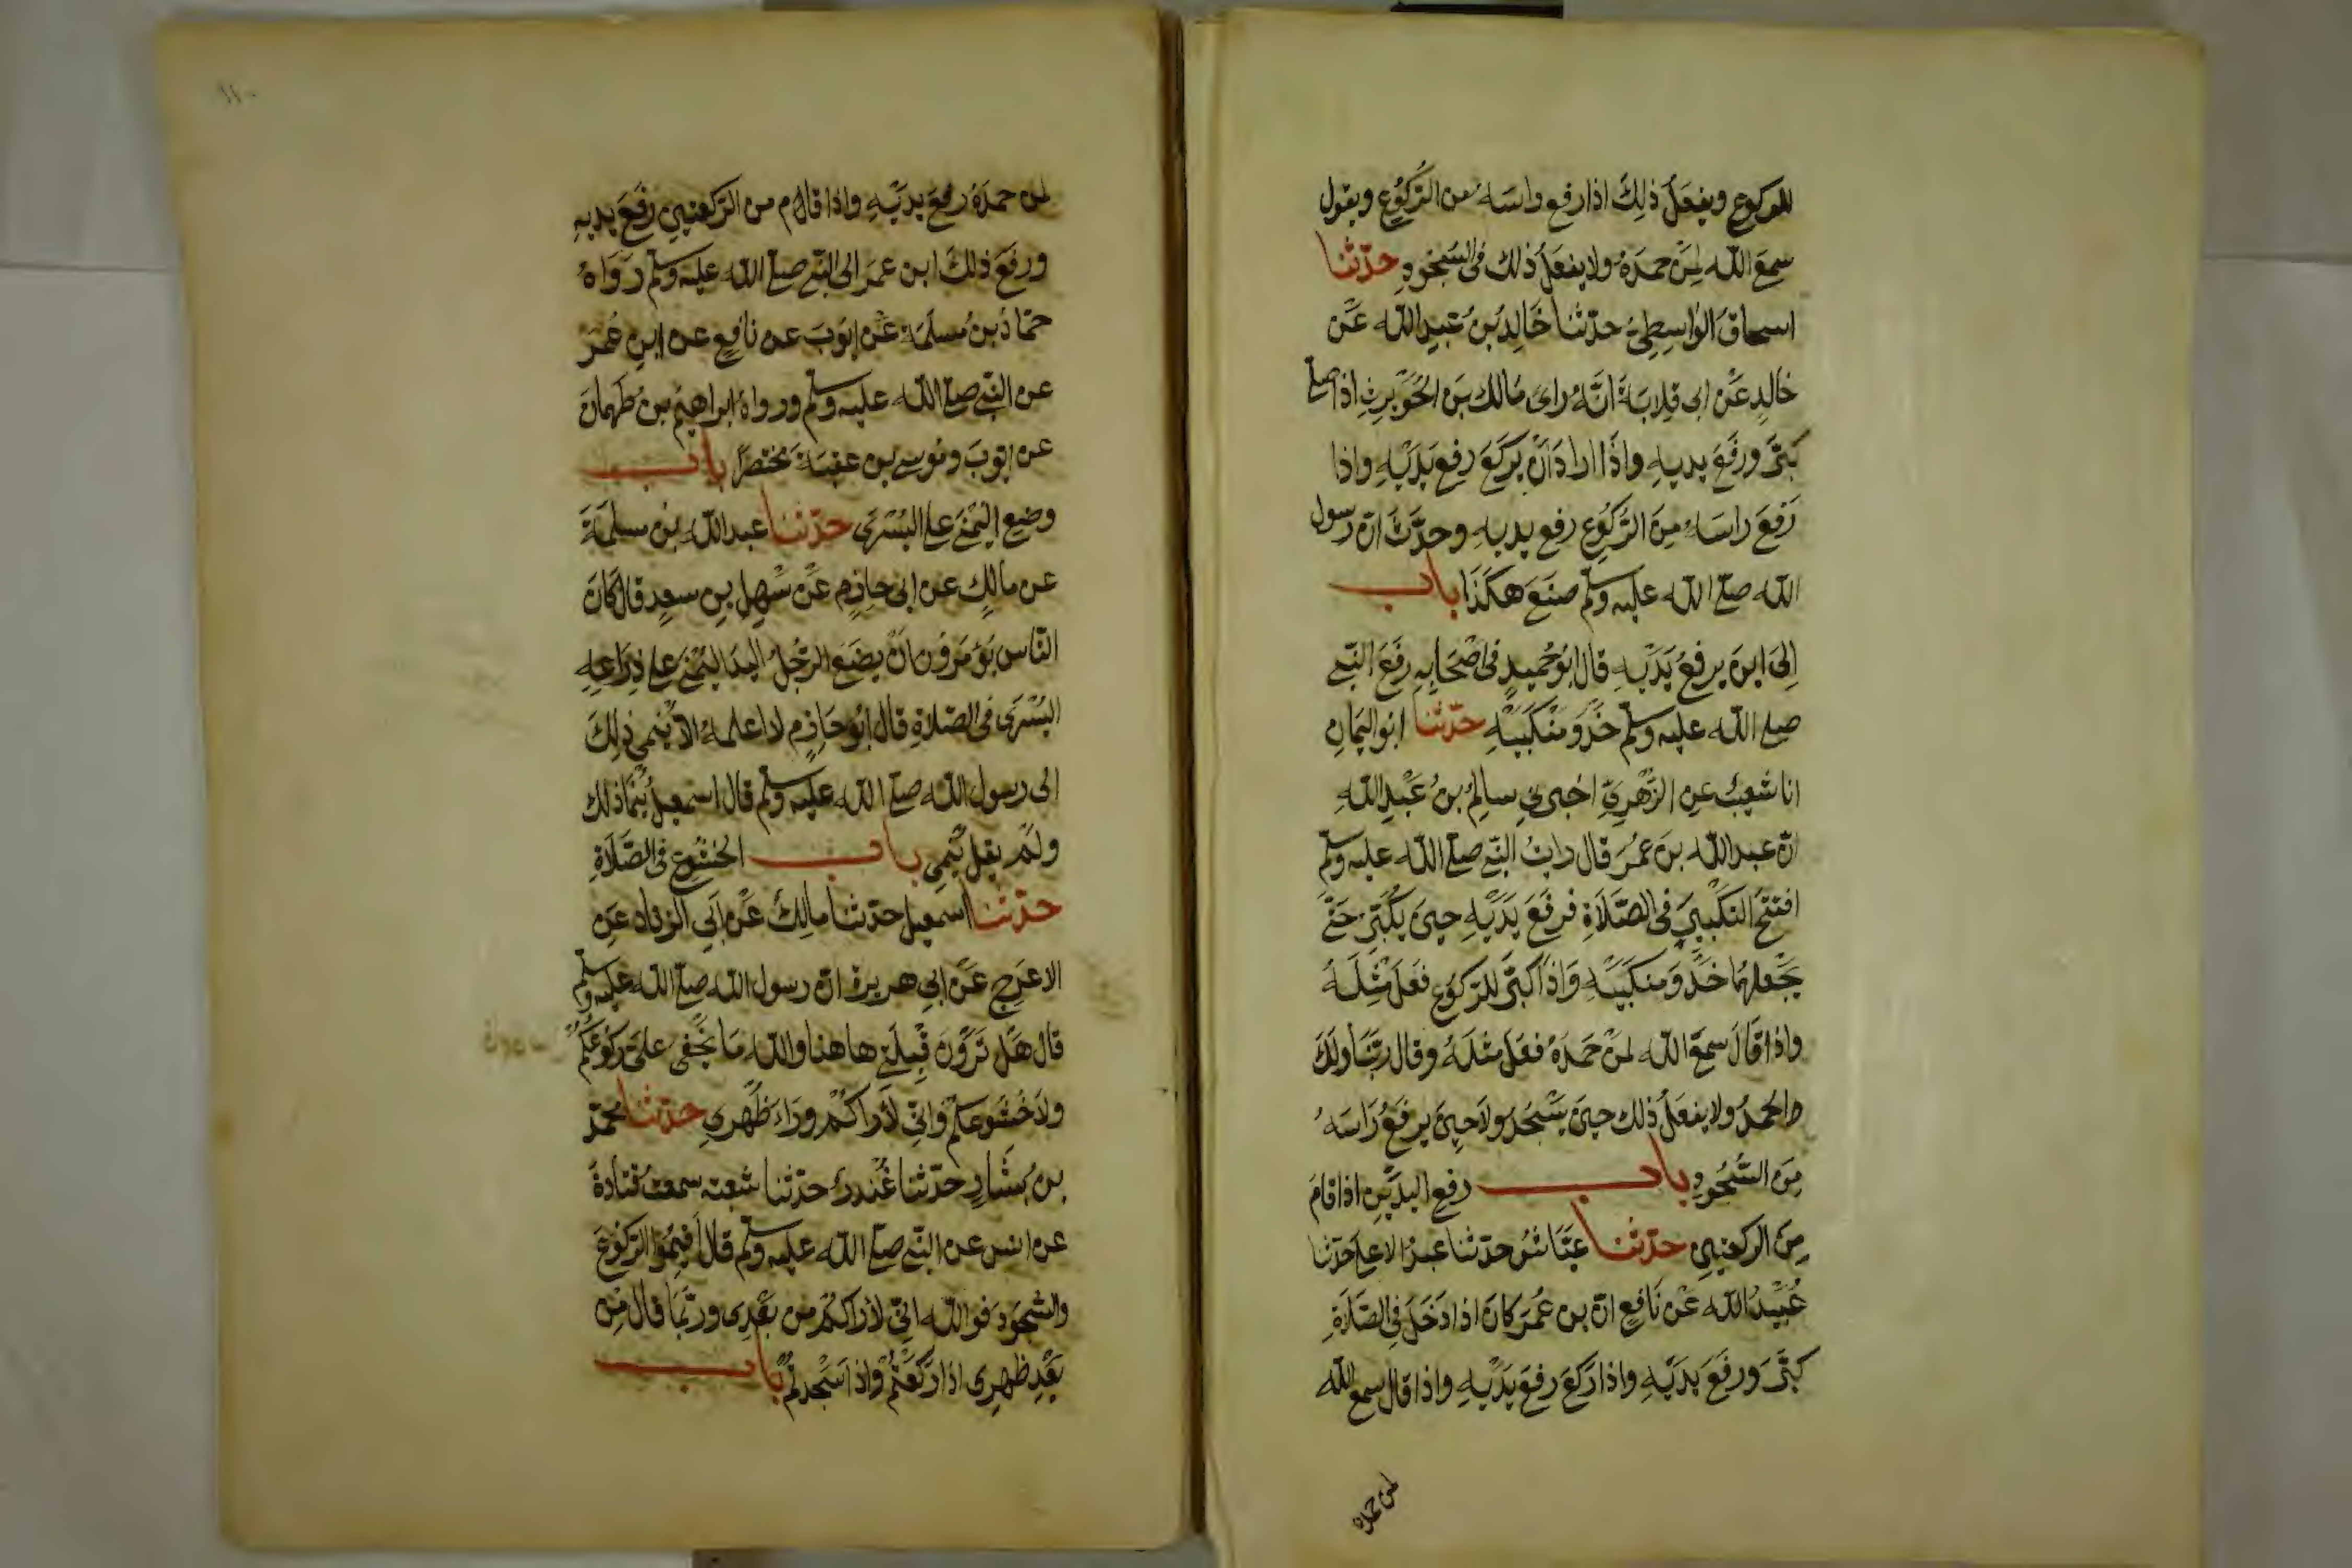 للركوع ويفعل ذلك اذا رفع راسه من الركوع ويقول
سمع الله لمن حمده ولا يفعل ذلك في السجود حدثنا
اسحاق الواسطي حدثنا خالد بن عبد الله عن
خالد عن ابي قلابة انه راى مالك بن الحويرث اذا صلى
كبر ورفع يديه واذا اراد ان يركع رفع يديه واذا
رفع راسه من الركوع رفع يديه وحدث ان رسول
الله صلى الله عليه وسلم صنع هكذا باب
الى اين يرفع يديه قال ابو حميد في اصحابه رفع النبي
صلى الله عليه وسلم حذو منكبيه حدثنا ابو اليمان
انا شعيب عن الزهري اخبرني سالم بن عبد الله
ان عبد الله بن عمر قال رايت النبي صلى الله عليه وسلم
افتتح التكبير في الصلاة فرفع يديه حين يكبر حتى
يجعلهما حذو منكبيه واذا كبر للركوع فعل مثله
واذا قال سمع الله لمن حمده فعل مثله وقال ربنا ولك
الحمد ولا يفعل ذلك حين يسجد ولا حين يرفع راسه
من السجود باب رفع اليدين اذا قام
من الركعتين حدثنا عياش حدثنا عبد الاعلى حدثنا
عبيد الله عن نافع ان بن عمر كان اذا دخل في الصلاة
كبر ورفع يديه واذا ركع رفع يديه واذا قال سمع الله
لمن حمده
١١٠
لمن حمده رفع يديه واذا قام من الركعتين رفع يديه
ورفع ذلك ابن عمر الى النبي صلى الله عليه وسلم رواه
حماد بن سلمة عن ايوب عن نافع عن ابن عمر
عن النبي صلى الله عليه وسلم ورواه ابراهيم بن طهمان
عن ايوب وموسى بن عقبة مختصرا باب
وضع اليمنى على اليسرى حدثنا عبد الله بن مسلمة
عن مالك عن ابي حازم عن سهل بن سعد قال كان
الناس يؤمرون ان يضع الرجل اليد اليمنى على ذراعه
اليسرى في الصلاة قال ابو حازم لا اعلمه الا ينمي ذلك
الى رسول الله صلى الله عليه وسلم قال اسمعيل ينما ذلك
ولم يقل ينمي باب الخشوع في الصلاة
حدثنا اسمعيل حدثنا مالك عن ابي الزناد عن
الاعرج عن ابي هريرة ان رسول الله صلى الله عليه وسلم
قال هل ترون قبلتي هاهنا والله ما يخفى على ركوعكم
ولا خشوعكم واني لاراكم وراء ظهري حدثنا محمد
بن بشار حدثنا غندر حدثنا شعبة سمعت قتادة
عن انس عن النبي صلى الله عليه وسلم قال اقيموا الركوع
والسجود فوالله اني لاراكم من بعدي وربما قال من
بعد ظهري اذا ركعتم واذا سجدتم باب